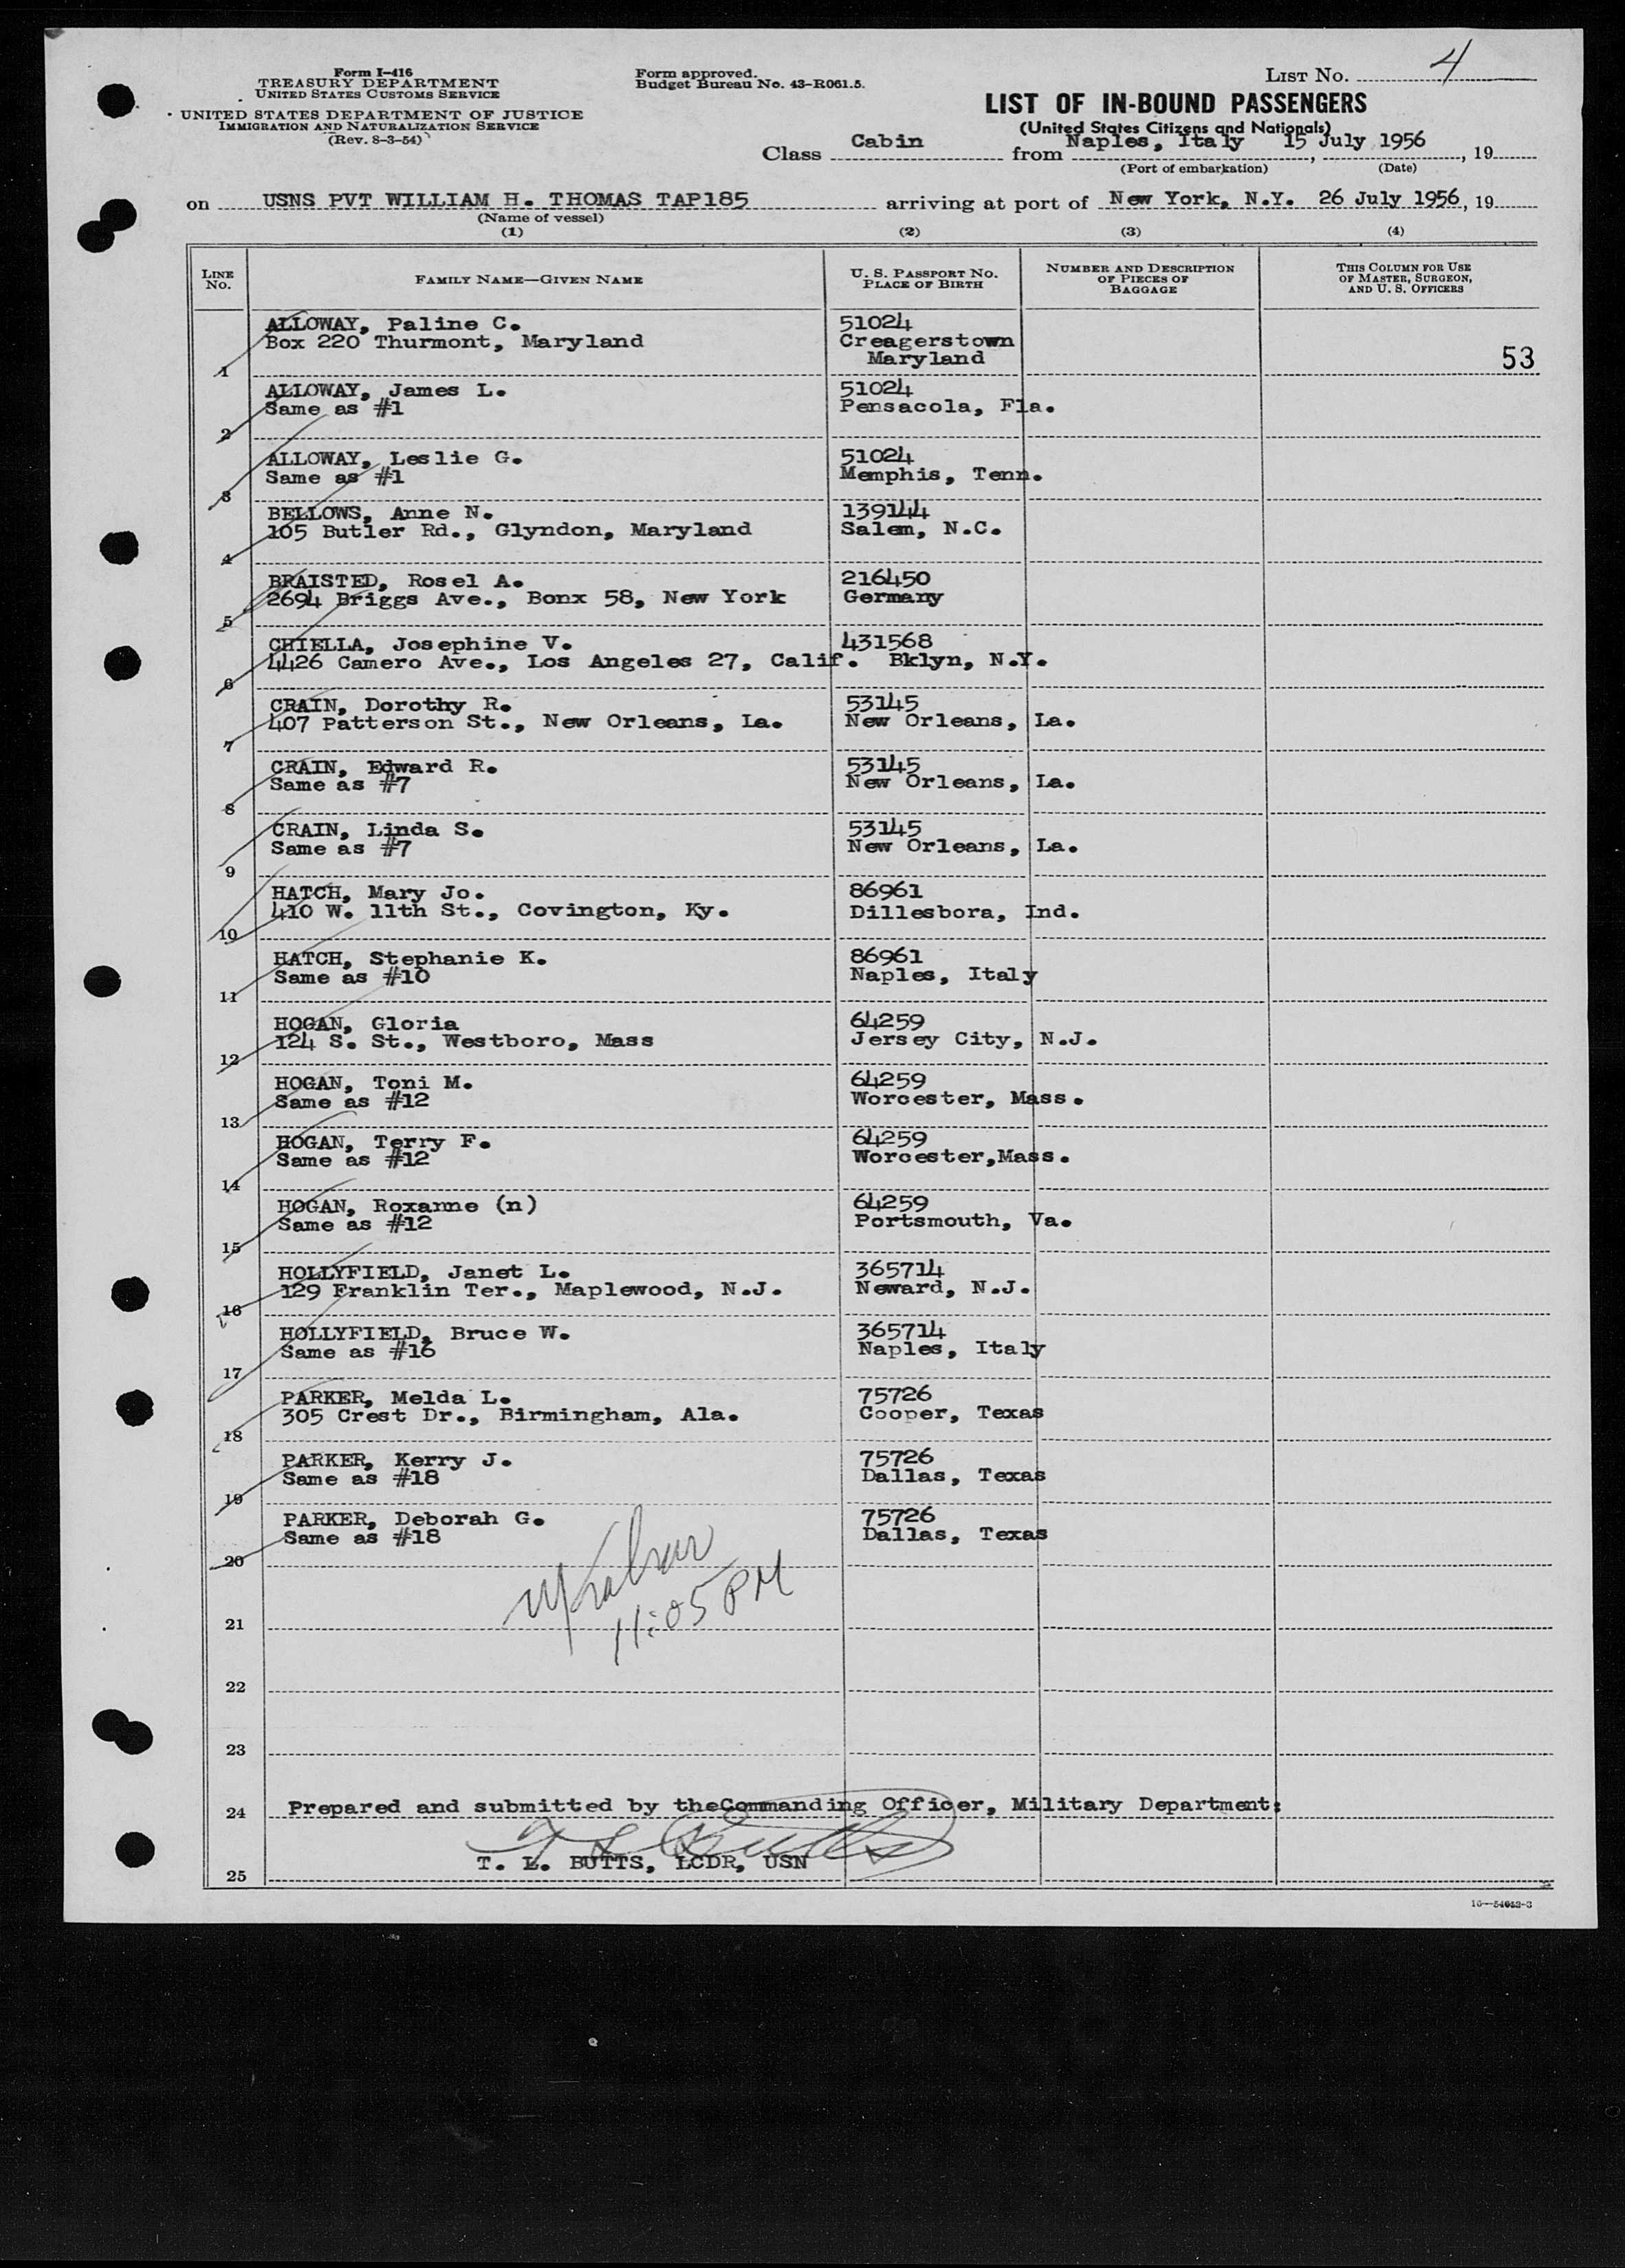 Form I-416
TREASURY DEPARTMENT
UNITED STATES CUSTOMS SERVICE
UNITED STATES DEPARTMENT OF JUSTICE
IMMIGRATION AND NATURALIZATION SERVICE
(Rev. 8-3-54)
Form approved.
Budget Bureau No. 43-R061.5.
LIST No. 4
LIST OF IN-BOUND PASSENGERS
(United States Citizens and Nationals)
Class Cabin from Naples, Italy 15 July 1956, 19
(Port of embarkation) (Date)
on USNS PVT WILLIAM H. THOMAS TAP185 arriving at port of New York, N.Y. 26 July 1956, 19
(Name of vessel)
(1) (2) (3) (4)
LINE No. FAMILY NAME—GIVEN NAME U. S. PASSPORT No. PLACE OF BIRTH NUMBER AND DESCRIPTION OF PIECES OF BAGGAGE THIS COLUMN FOR USE OF MASTER, SURGEON, AND U. S. OFFICERS
ALLOWAY, Paline C. 51024
Box 220 Thurmont, Maryland Creagerstown
1 Maryland 53
ALLOWAY, James L. 51024
Same as #1 Pensacola, Fla.
2
ALLOWAY, Leslie G. 51024
Same as #1 Memphis, Tenn.
3
BELLOWS, Anne N. 139144
105 Butler Rd., Glyndon, Maryland Salem, N.C.
4
BRAISTED, Rosel A. 216450
2694 Briggs Ave., Bonx 58, New York Germany
5
CHIELLA, Josephine V. 431568
4426 Camero Ave., Los Angeles 27, Calif. Bklyn, N.Y.
6
CRAIN, Dorothy R. 53145
407 Patterson St., New Orleans, La. New Orleans, La.
7
CRAIN, Edward R. 53145
Same as #7 New Orleans, La.
8
CRAIN, Linda S. 53145
Same as #7 New Orleans, La.
9
HATCH, Mary Jo. 86961
410 W. 11th St., Covington, Ky. Dillesbora, Ind.
10
HATCH, Stephanie K. 86961
Same as #10 Naples, Italy
11
HOGAN, Gloria 64259
124 S. St., Westboro, Mass Jersey City, N.J.
12
HOGAN, Toni M. 64259
Same as #12 Worcester, Mass.
13
HOGAN, Terry F. 64259
Same as #12 Worcester,Mass.
14
HOGAN, Roxanne (n) 64259
Same as #12 Portsmouth, Va.
15
HOLLYFIELD, Janet L. 365714
129 Franklin Ter., Maplewood, N.J. Neward, N.J.
16
HOLLYFIELD, Bruce W. 365714
Same as #16 Naples, Italy
17
PARKER, Melda L. 75726
305 Crest Dr., Birmingham, Ala. Cooper, Texas
18
PARKER, Kerry J. 75726
Same as #18 Dallas, Texas
19
PARKER, Deborah G. 75726
Same as #18 Dallas, Texas
20
11:05 PM
21
22
23
24 Prepared and submitted by theCommanding Officer, Military Department:
T L Butts
25 T. L. BUTTS, LCDR, USN